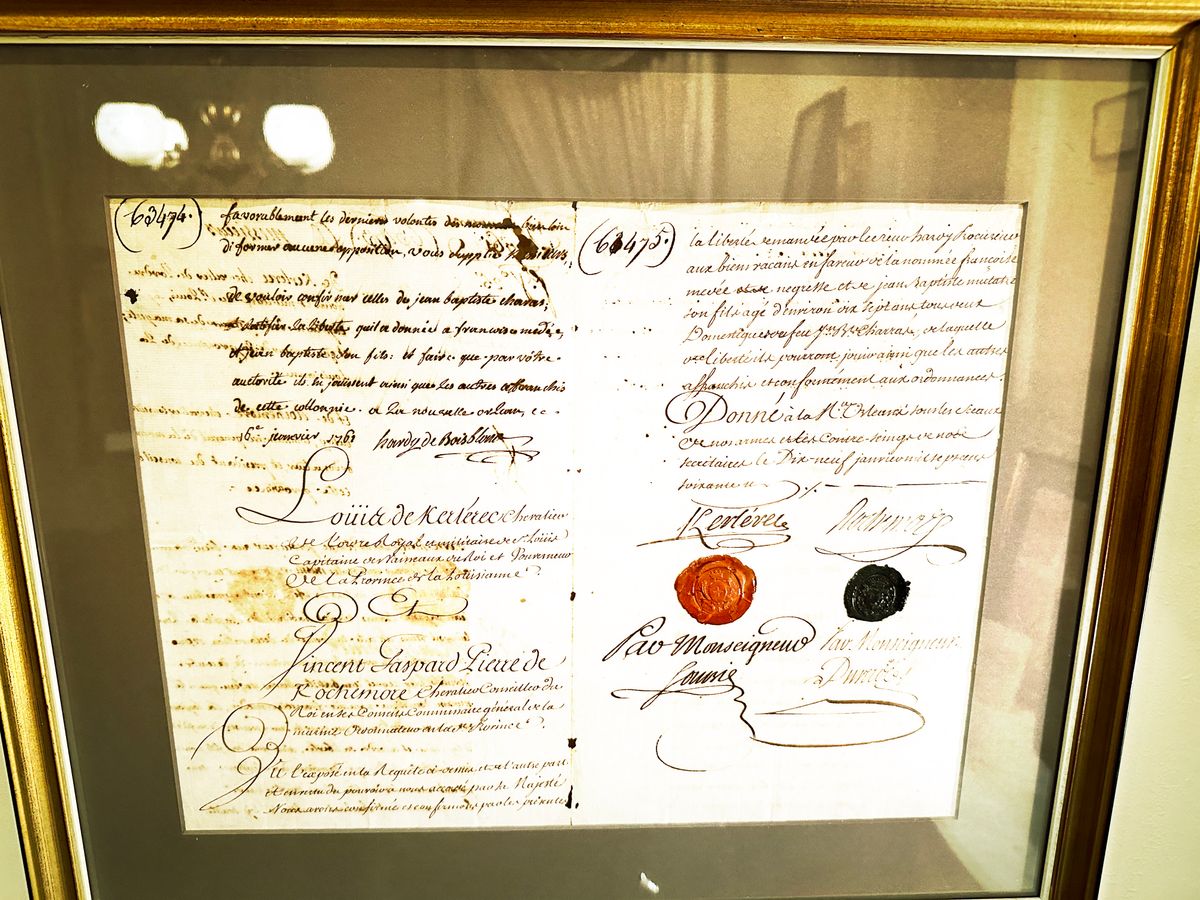 (63474.
favorablement les dernieres volontes
de former aucune opposition, vous supplie
de vouloir confirmer celles de jean baptiste charas,
et ratifier la liberté quil a donnée a francoise medée,
et jean baptiste son fils. et faire que par vôtre
autorité ils en jouissent ainsi que les autres affranchis
de cette collonnie. a la nouvelle orleans, ce
16e janvier 1761 hardy de Boisblanc
Loüis de Kerlérec Chevalier
de l'ordre Royal et militaire de St Loüis
Capitaine de Vaisseaux du Roi et Gouverneur
de la Province de la Loüisianne
Et
Vincent Gaspard Pierre de
Rochemore Chevalier Conseiller du
Roi en ses Conseils Commissaire général de la
marine Ordonnateur en lad. Province.
Vû l'exposé en la Requête ci-dessus et de l'autre part
et en vertu du pouvoir a nous par Sa Majesté
Nous avons confirmé et confirmons par les présentes
(63475.)
la liberté demandée par le sieur hardy Procureur
aux biens vacans en faveur de la nommée francoise
medée negresse et de jean Baptiste mulatre
son fils agé d'environ dix sept ans tous deux
Domestiques du feu Jn. Bte. Charras, de laquelle
liberté ils pourront jouir ainsi que les autres
affranchis et conformément aux ordonnances.
Donné à la Nlle Orleans sous les sceaux
de nos armes et les Contre-seings de nos
secretaires le Dix-neuf janvier mil sept cens
soixante un ./.
Kerlérec Rochemore
Par Monseigneur Par Monseigneur